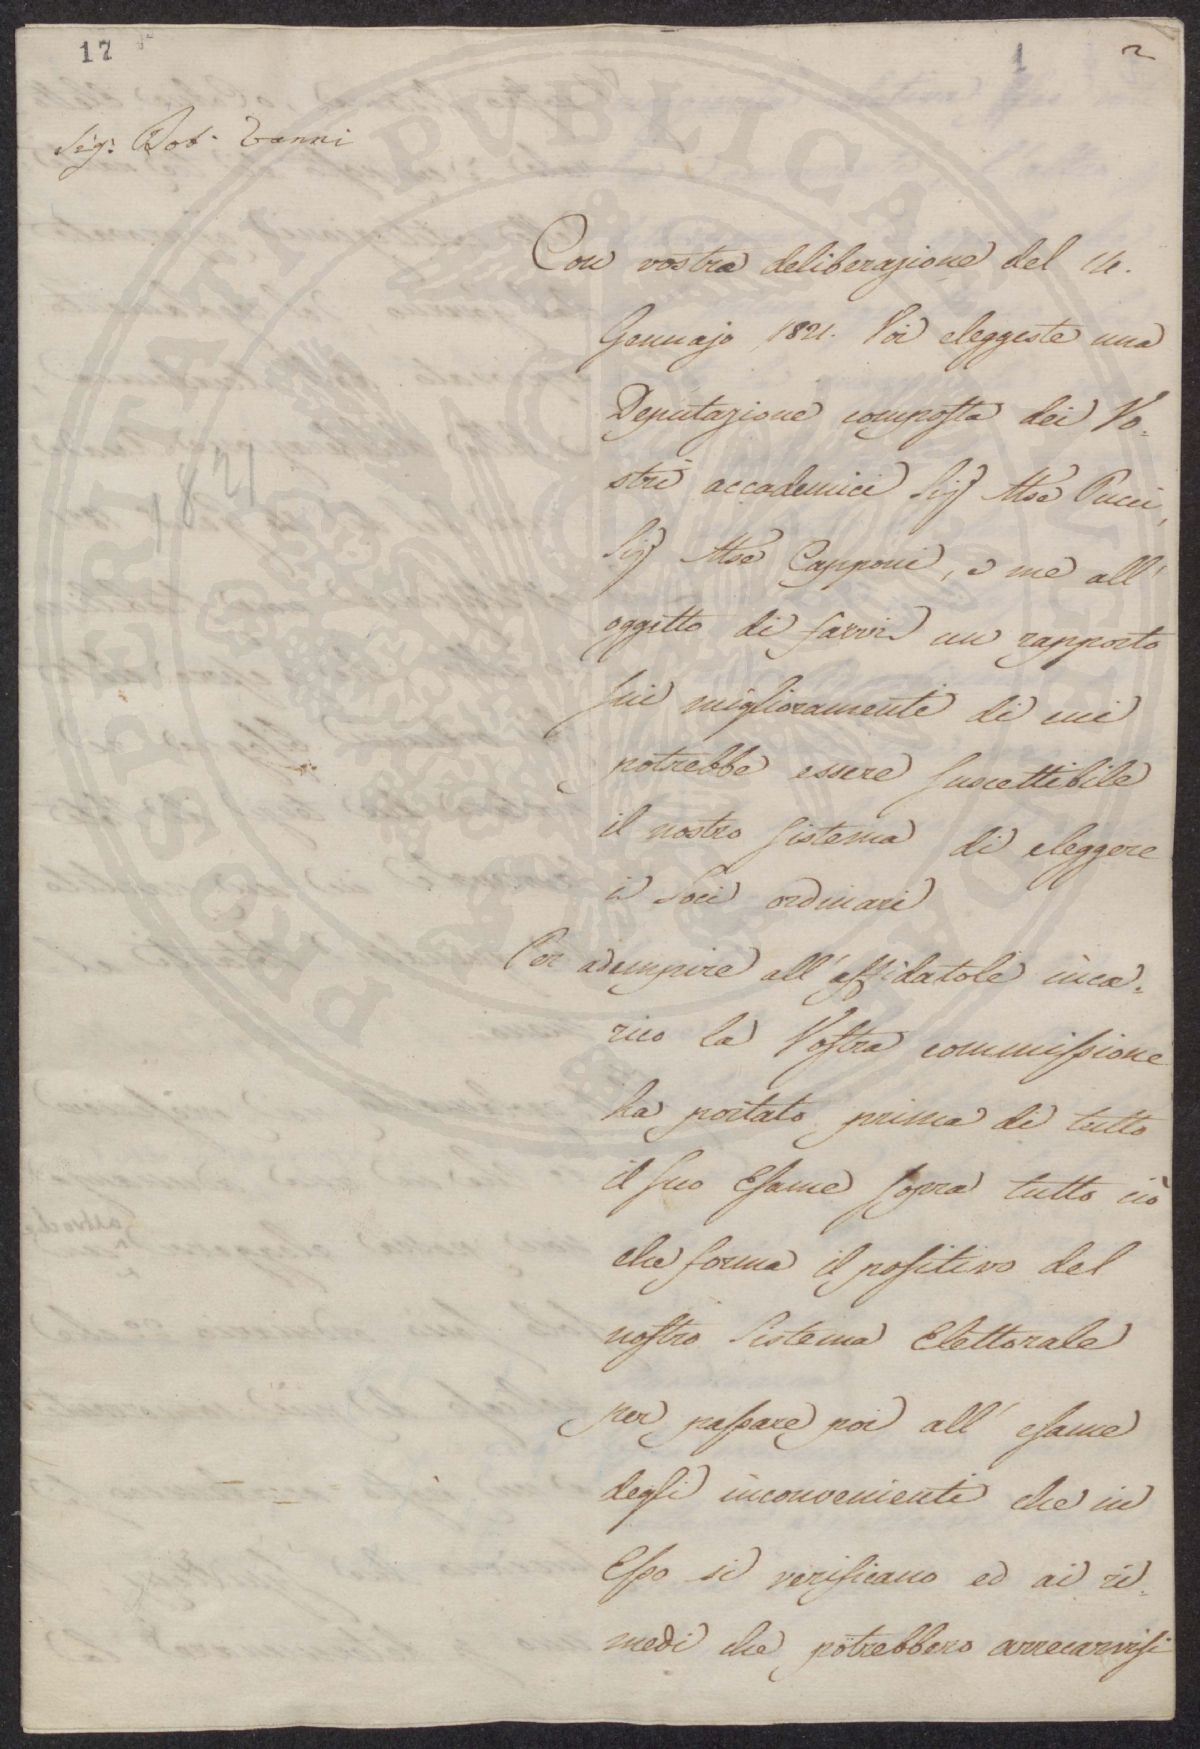 17
1
2
Sig.r Dot. Vanni
1821
Con vostra deliberazione del 14.
Gennajo 1821. Voi eleggeste una
Deputazione composta dei Vo=
stri accademici Sig Mse Pucci,
Sig Mse Capponi, e me all'
oggetto di farvi un rapporto
sui miglioramenti di cui
potrebbe essere suscettibile
il nostro sistema di eleggere
i Soci ordinari
Per adempire all'affidatole inca=
rico la Vostra commissione
ha portato prima di tutto
il suo Esame sopra tutto ciò
che forma il positivo del
nostro Sistema Elettorale
per passare poi all' esame
degli inconvenienti che in
Esso si verificano ed ai ri=
medi che potrebbero arrecarvisi
PROPRIETATI PUBLICAE